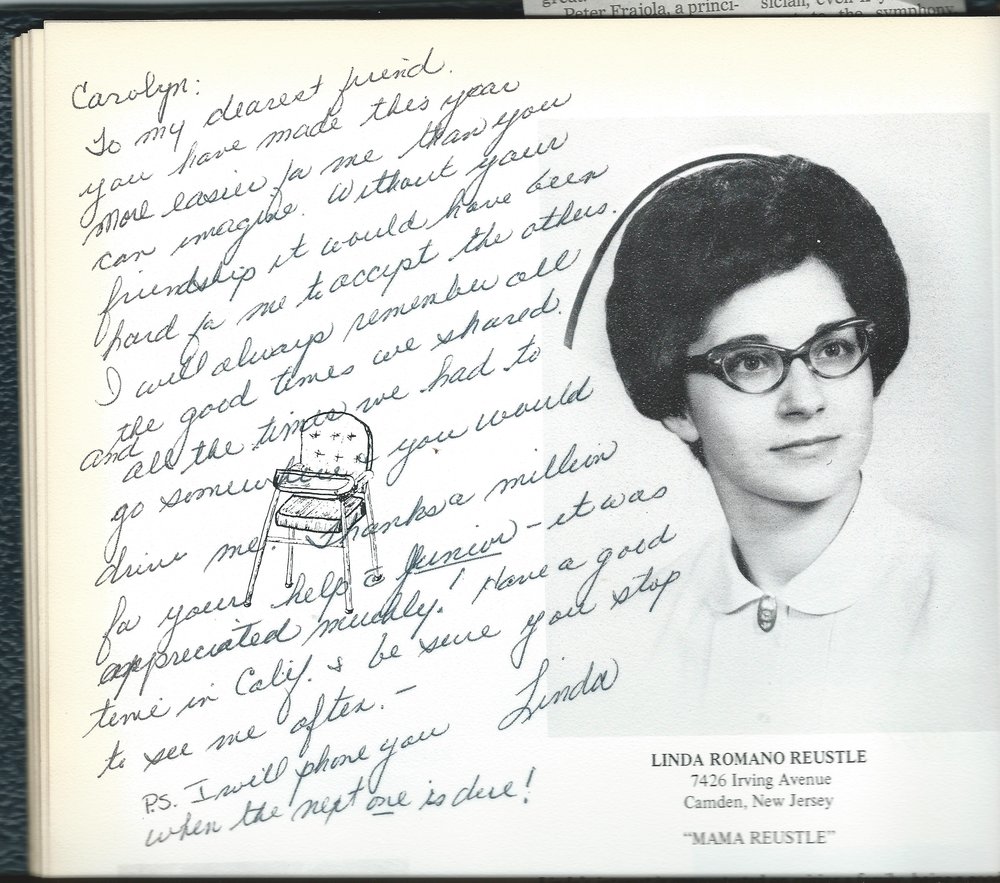 great.
Peter Fraiola, a princi-
sician, even if y
to the symphony
Carolyn:
To my dearest friend.
you have made this year
more easier for me than you
can imagine. Without your
friendship it would have been
hard for me to accept the others.
I will always remember all
the good times we shared.
and all the times we had to
go somewhere & you would
drive me. Thanks a million
for your help c̄ Junior - it was
appreciated muchly! Have a good
time in Calif. & be sure you stop
to see me often. -
Linda
P.S. I will phone you
when the next one is due!
LINDA ROMANO REUSTLE
7426 Irving Avenue
Camden, New Jersey
"MAMA REUSTLE"